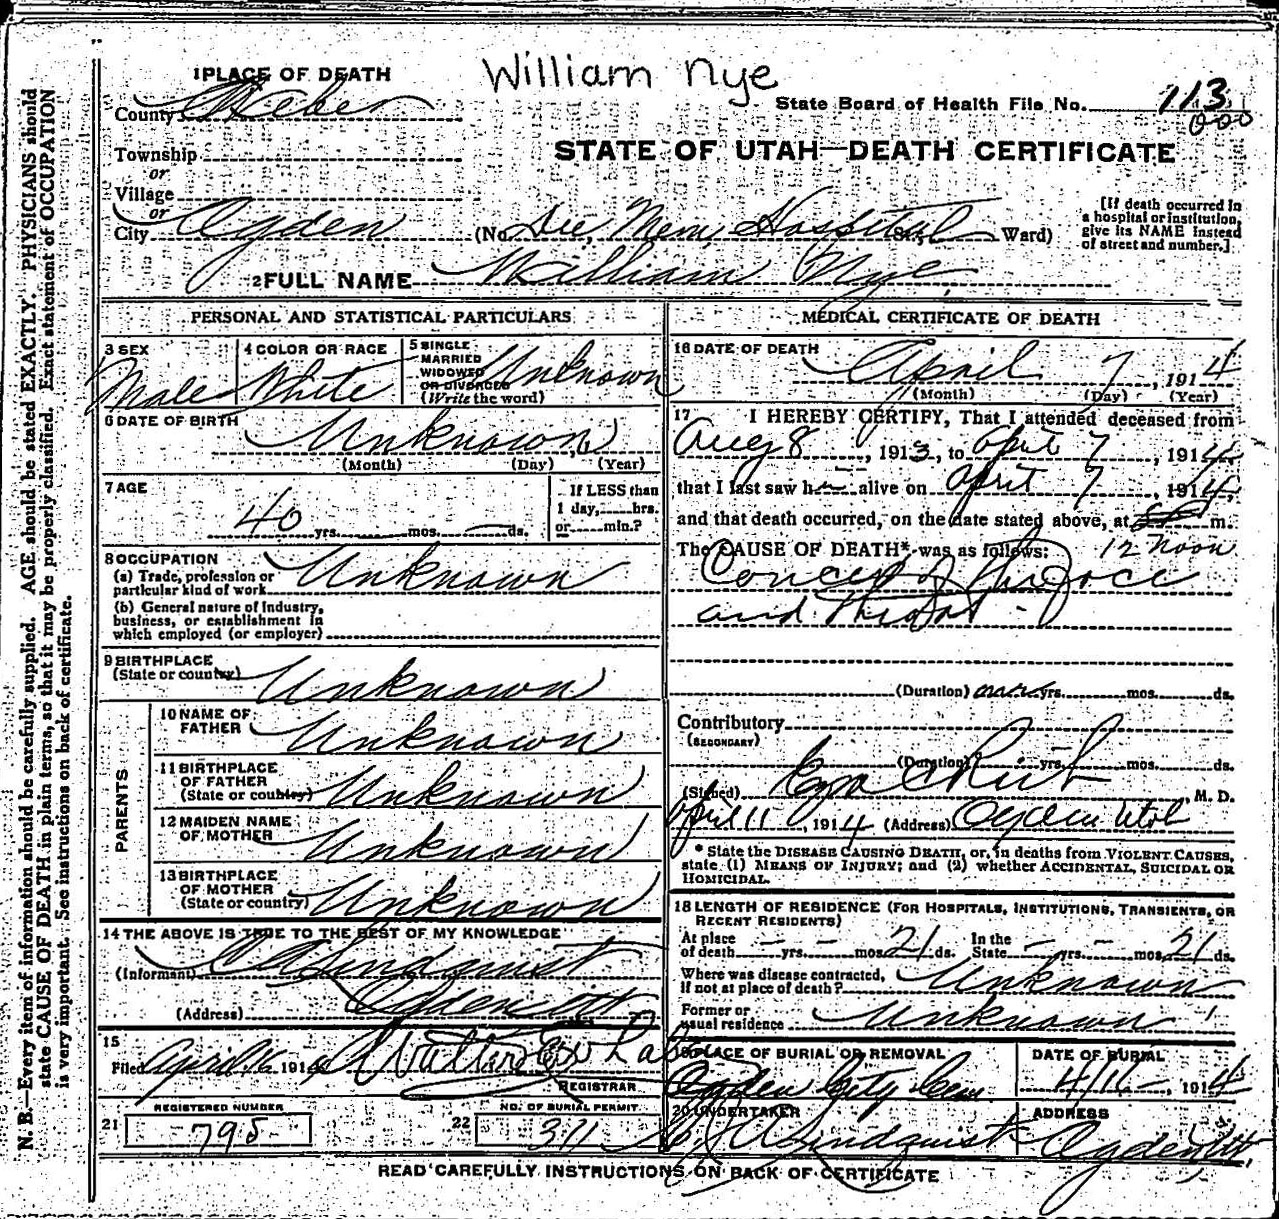 William Nye
1 PLACE OF DEATH
County Weber
State Board of Health File No. 113
000
STATE OF UTAH—DEATH CERTIFICATE
Township
or
Village
or
City Ogden (No. Dee Mem, Hospital St., Ward)
[If death occurred in
a hospital or institution,
give its NAME instead
of street and number.]
2 FULL NAME William Nye
PERSONAL AND STATISTICAL PARTICULARS
3 SEX
Male
4 COLOR OR RACE
White
5 SINGLE
MARRIED
WIDOWED
OR DIVORCED
(Write the word)
Unknown
6 DATE OF BIRTH
Unknown
(Month) (Day) (Year)
7 AGE
40 yrs. mos. ds.
If LESS than
1 day, hrs.
or min.?
8 OCCUPATION
(a) Trade, profession or
particular kind of work Unknown
(b) General nature of Industry,
business, or establishment in
which employed (or employer)
9 BIRTHPLACE
(State or country) Unknown
PARENTS
10 NAME OF
FATHER Unknown
11 BIRTHPLACE
OF FATHER
(State or country) Unknown
12 MAIDEN NAME
OF MOTHER Unknown
13 BIRTHPLACE
OF MOTHER
(State or country) Unknown
14 THE ABOVE IS TRUE TO THE BEST OF MY KNOWLEDGE
(Informant) Lindquist
(Address) Ogden
15
Filed April 16 191
REGISTRAR
REGISTERED NUMBER
21 795
NO. OF BURIAL PERMIT
22 311
MEDICAL CERTIFICATE OF DEATH
16 DATE OF DEATH
April 7, 1914
(Month) (Day) (Year)
17 I HEREBY CERTIFY, That I attended deceased from
Aug 8, 1913, to April 7, 1914,
that I last saw h alive on April 7, 1914,
and that death occurred, on the date stated above, at m.
The CAUSE OF DEATH* was as follows: 12 noon
Cancer of the face
and throat
(Duration) yrs. mos. ds.
Contributory
(SECONDARY)
(Duration) yrs. mos. ds.
(Signed) Rich, M. D.
April 11, 1914 (Address) Ogden Utah
* State the DISEASE CAUSING DEATH, or, in deaths from VIOLENT CAUSES,
state (1) MEANS OF INJURY; and (2) whether ACCIDENTAL, SUICIDAL OR
HOMICIDAL.
18 LENGTH OF RESIDENCE (FOR HOSPITALS, INSTITUTIONS, TRANSIENTS, OR
RECENT RESIDENTS)
At place
of death - yrs. - mos. 21 ds.
In the
State - yrs. - mos. 21 ds.
Where was disease contracted,
if not at place of death? Unknown
Former or
usual residence Unknown
19 PLACE OF BURIAL OR REMOVAL
Ogden City Cem
DATE OF BURIAL
4/11 1914
20 UNDERTAKER
Lindquist
ADDRESS
Ogden, Ut.
READ CAREFULLY INSTRUCTIONS ON BACK OF CERTIFICATE
N. B.—Every item of information should be carefully supplied. AGE should be stated EXACTLY. PHYSICIANS should
state CAUSE OF DEATH in plain terms, so that it may be properly classified. Exact statement of OCCUPATION
is very important. See instructions on back of certificate.